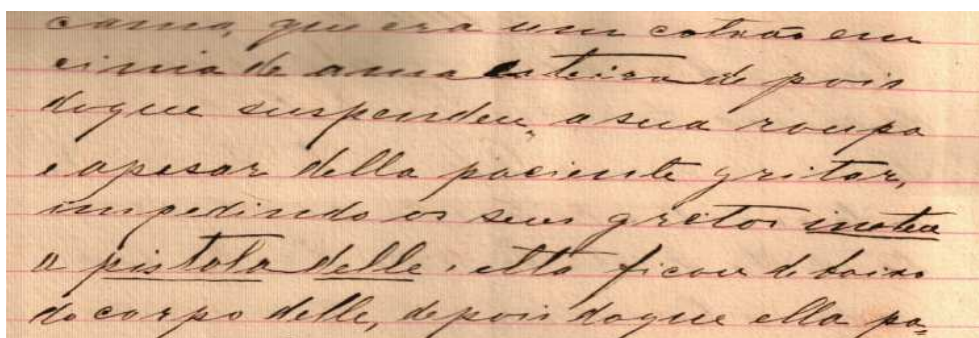 cama, que era um colxão em
cima de uma esteira de pois
doque suspendeu a sua roupa
e apesar della paciente gritar,
impedindo os seus gritos
a pistola delle, ella ficou debaixo
do corpo delle, depois doque ella pa=